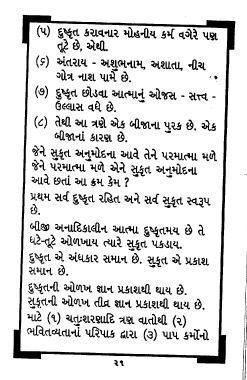 (૫) દુષ્કૃત કરાવનાર મોહનીય કર્મ વગેરે પણ
તૂટે છે, એથી.
(૬) અંતરાય - અશુભનામ, અશાતા, નીચ
ગોત્ર નાશ પામે છે.
(૭) દુષ્કૃત છોડવા આત્માનું ઓજસ - સત્ત્વ -
ઉલ્લાસ વધે છે.
(૮) તેથી આ ત્રણે એક બીજાના પુરક છે. એક
બીજાનાં કારણ છે.
જેને સુકૃત અનુમોદના આવે તેને પરમાત્મા મળે
જેને પરમાત્મા મળે એને સુકૃત અનુમોદના
આવે છતાં આ ક્રમ કેમ ?
પ્રથમ સર્વ દુષ્કૃત રહિત અને સર્વ સુકૃત સ્વરૂપ
છે.
બીજી અનાદિકાલીન આત્મા દુષ્કૃતમય છે તે
ઘટે-તૂટે ઓળખાય ત્યારે સુકૃત પકડાય.
દુષ્કૃત એ અંધકાર સમાન છે. સુકૃત એ પ્રકાશ
સમાન છે.
દુષ્કૃતની ઓળખ જ્ઞાન પ્રકાશથી થાય છે.
સુકૃતની ઓળખ તીવ્ર જ્ઞાન પ્રકાશથી થાય છે.
માટે (૧) ચતુઃશરણાદિ ત્રણ વાતોથી (૨)
ભવિતવ્યતાનાં પરિપાક દ્વારા (૩) પાપ કર્મોનો
૩૧